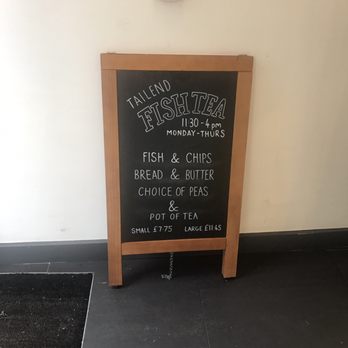 TAILEND
FISH TEA
11:30 - 4pm
MONDAY - THURS
FISH & CHIPS
BREAD & BUTTER
CHOICE OF PEAS
&
POT OF TEA
SMALL £7.75 LARGE £11.45